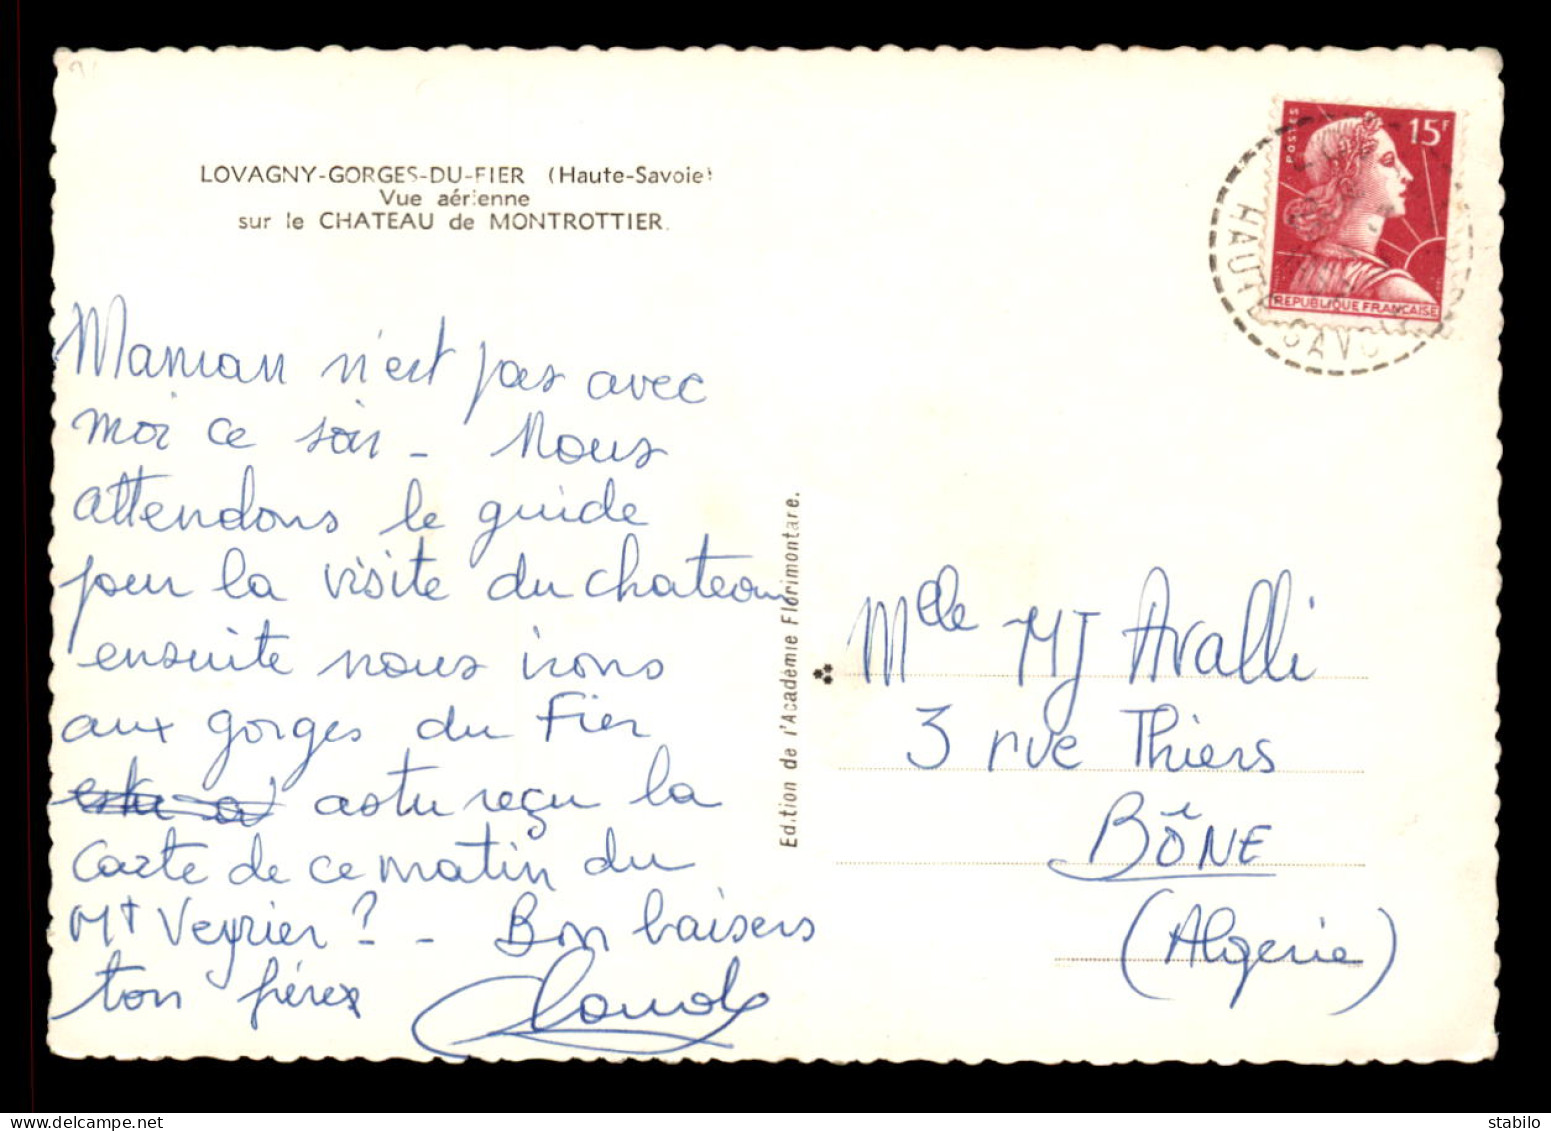 LOVAGNY-GORGES-DU-FIER (Haute-Savoie)
Vue aérienne
sur le CHATEAU de MONTROTTIER.
Maman n'est pas avec
moi ce soir - Nous
attendons le guide
pour la visite du chateau
ensuite nous irons
aux gorges du Fier
astu reçu la
Carte de ce matin du
Mt Veyrier ? - Bon baisers
ton frère Claude
Edition de l'Académie Florimontane.
POSTES
15F
REPUBLIQUE FRANCAISE
HAUTE SAVOIE
Mlle MJ Avalli
3 rue Thiers
BÔNE
(Algerie)
delcampe.net
stabilo